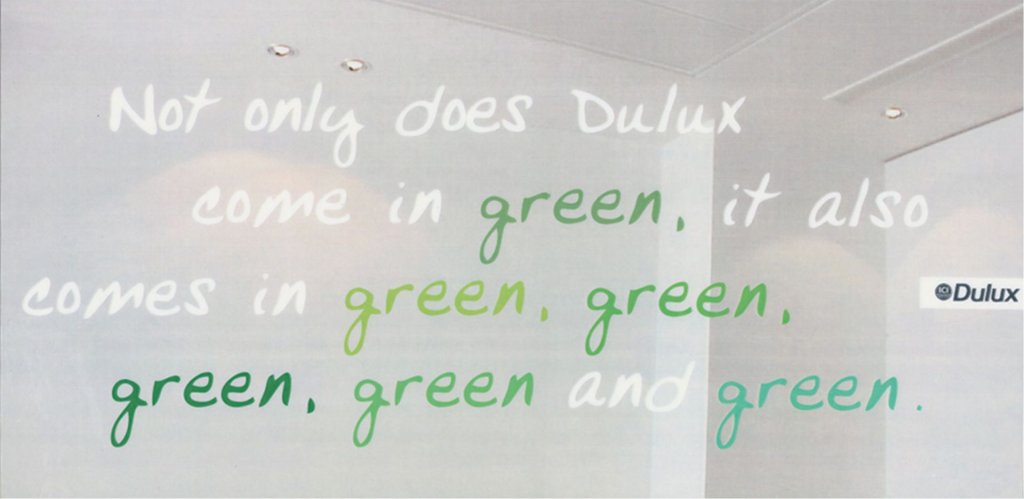 Not only does Dulux
come in green, it also
comes in green, green,
green, green and green.
ICI Dulux